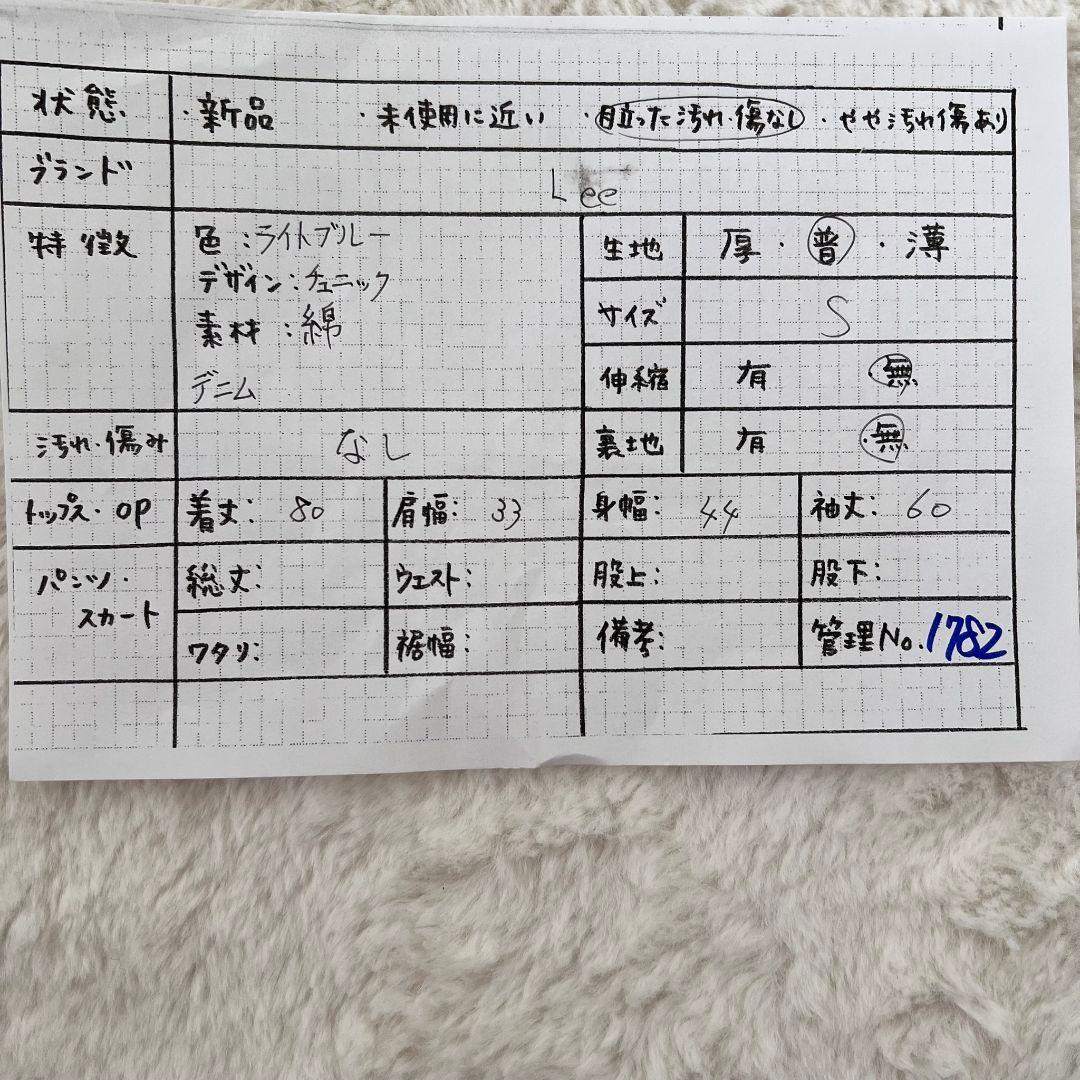 状態 ・新品 ・未使用に近い ・目立った汚れ・傷なし ・やや汚れ傷あり
ブランド Lee
特徴 色：ライトブルー
デザイン：チュニック
素材：綿
デニム
生地 厚・普・薄
サイズ S
伸縮 有 ・無
裏地 有 ・無
汚れ・傷み なし
トップス・OP 着丈：80 肩幅：33 身幅：44 袖丈：60
パンツ・スカート 総丈： ウエスト： 股上： 股下：
ワタリ： 裾幅： 備考： 管理No.1782